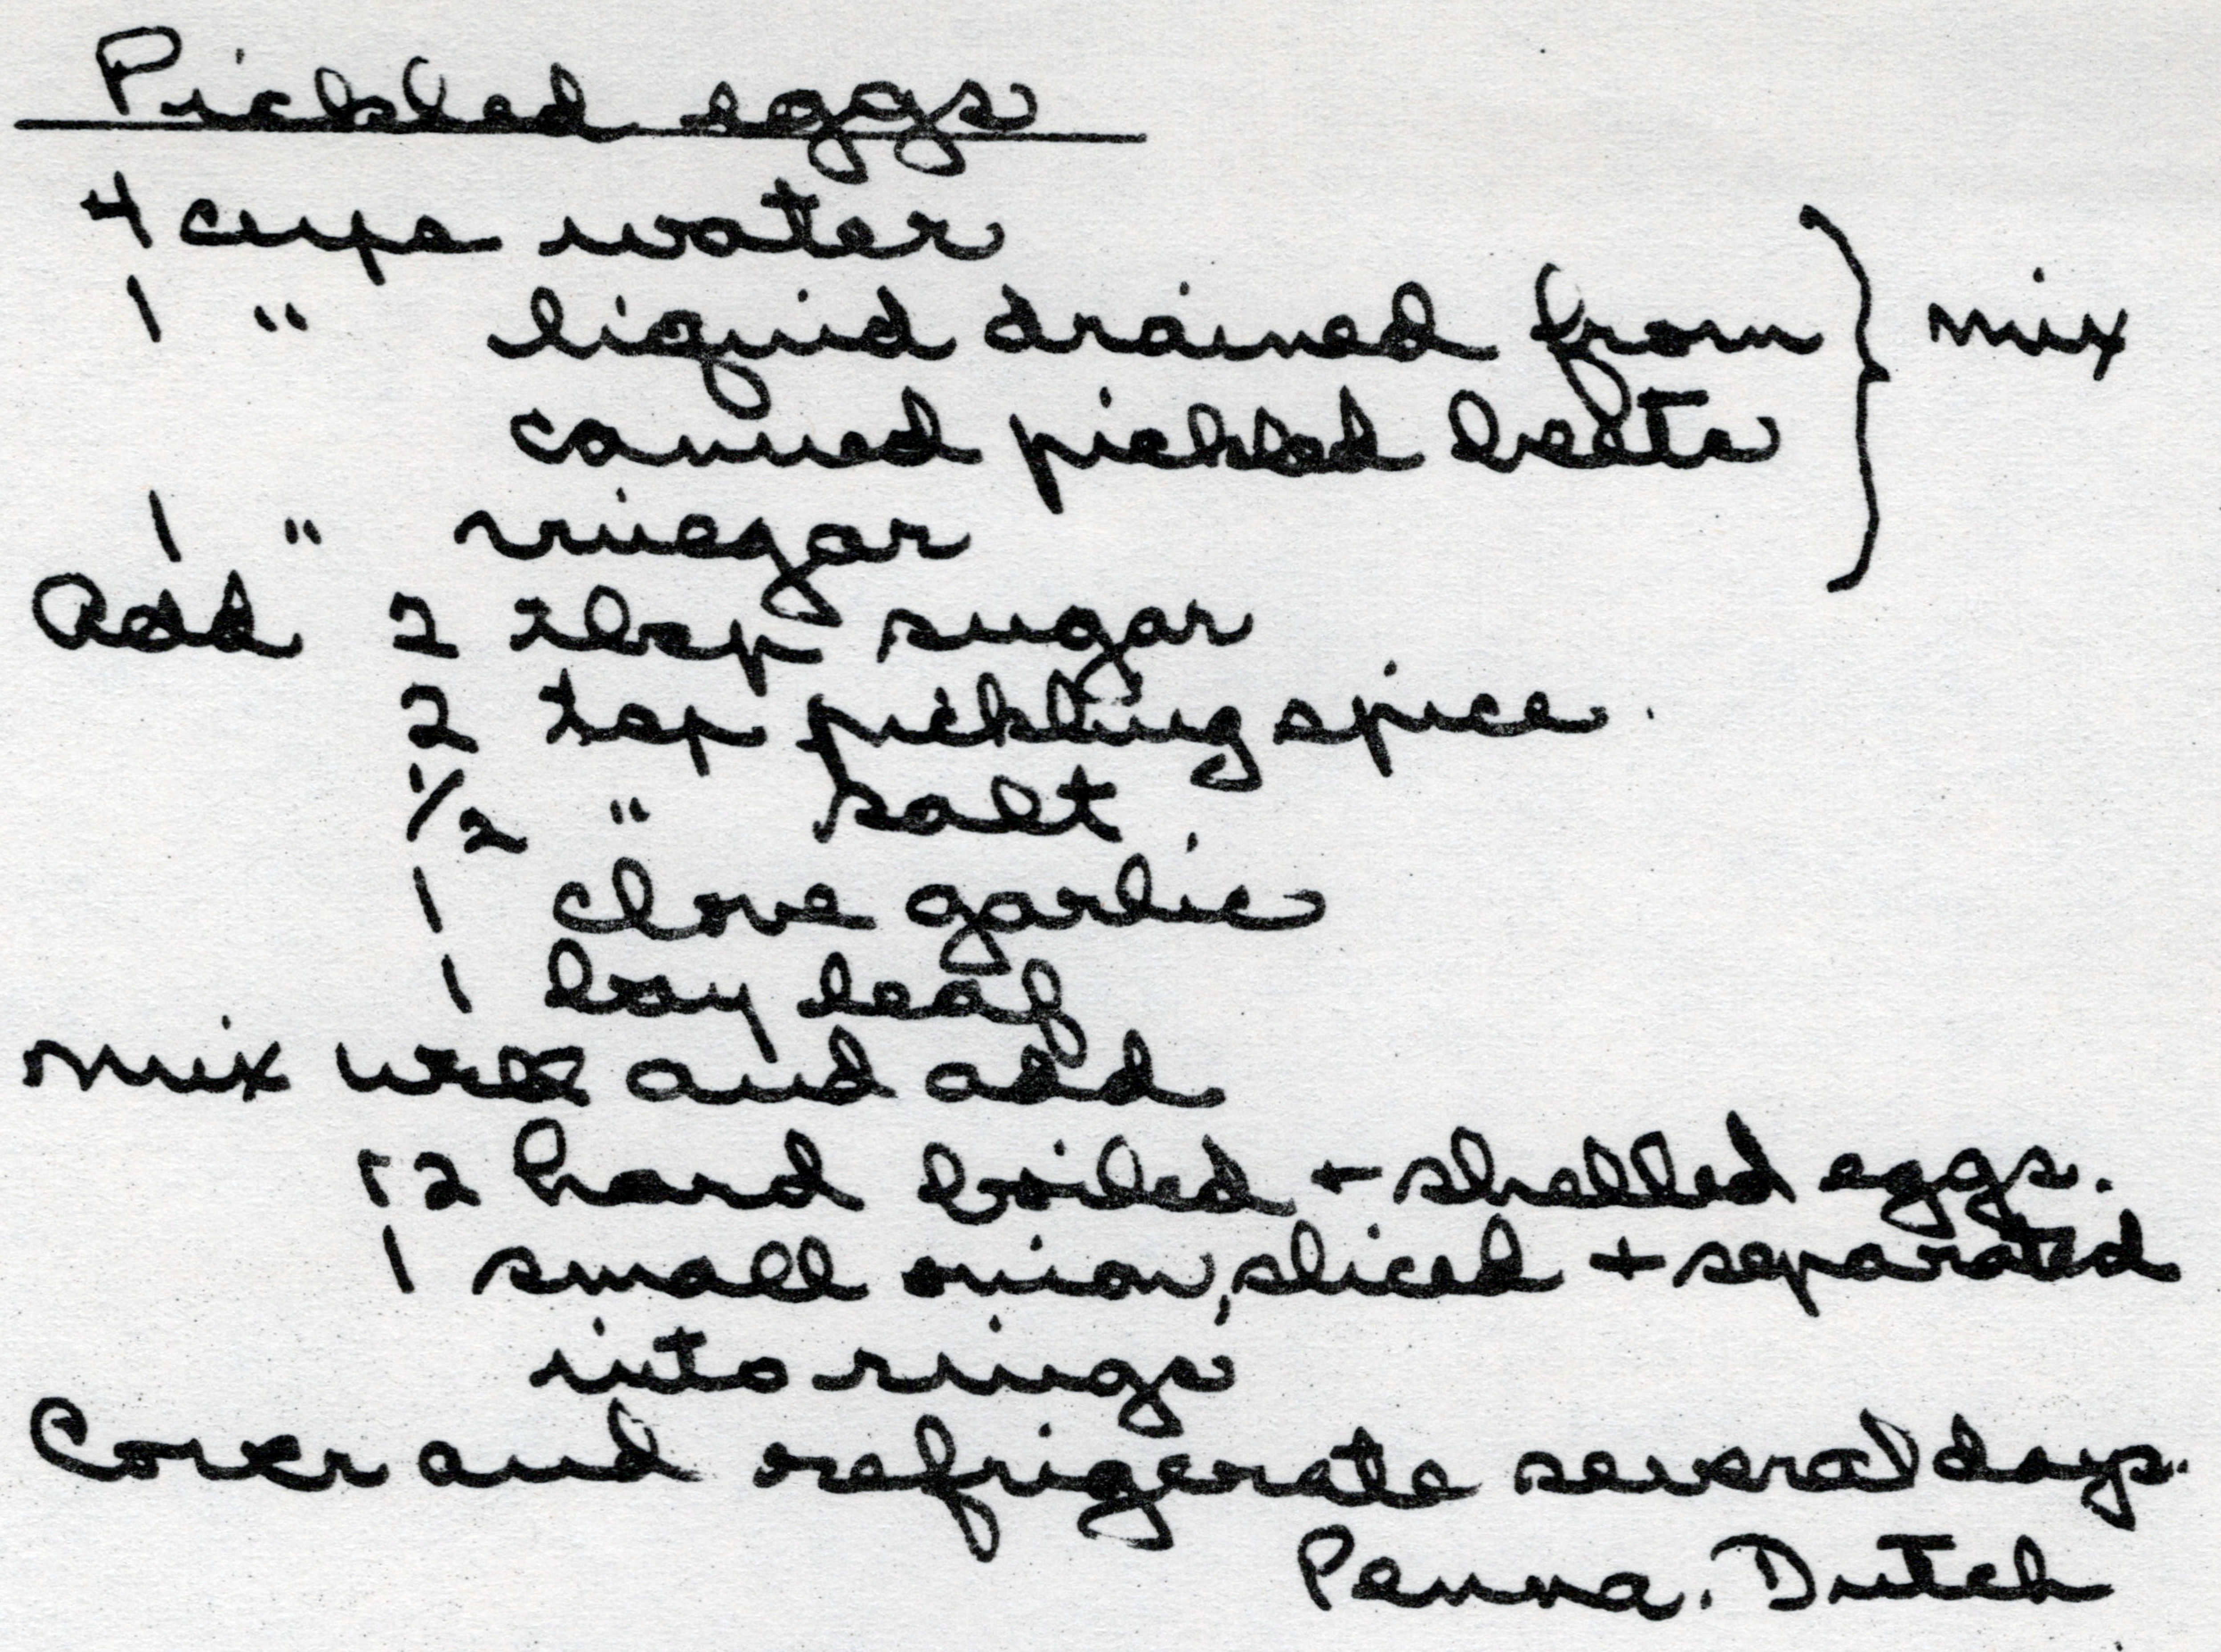 Pickled eggs
4 cups water
1 " liquid drained from
canned pickled beets
mix
1 " vinegar
Add 2 tbsp sugar
2 tsp pickling spice.
1/2 " salt
1 clove garlic
1 bay leaf
mix well and add
12 hard boiled + shelled eggs.
1 small onion, sliced + separated
into rings
Cover and refrigerate several days.
Penna. Dutch